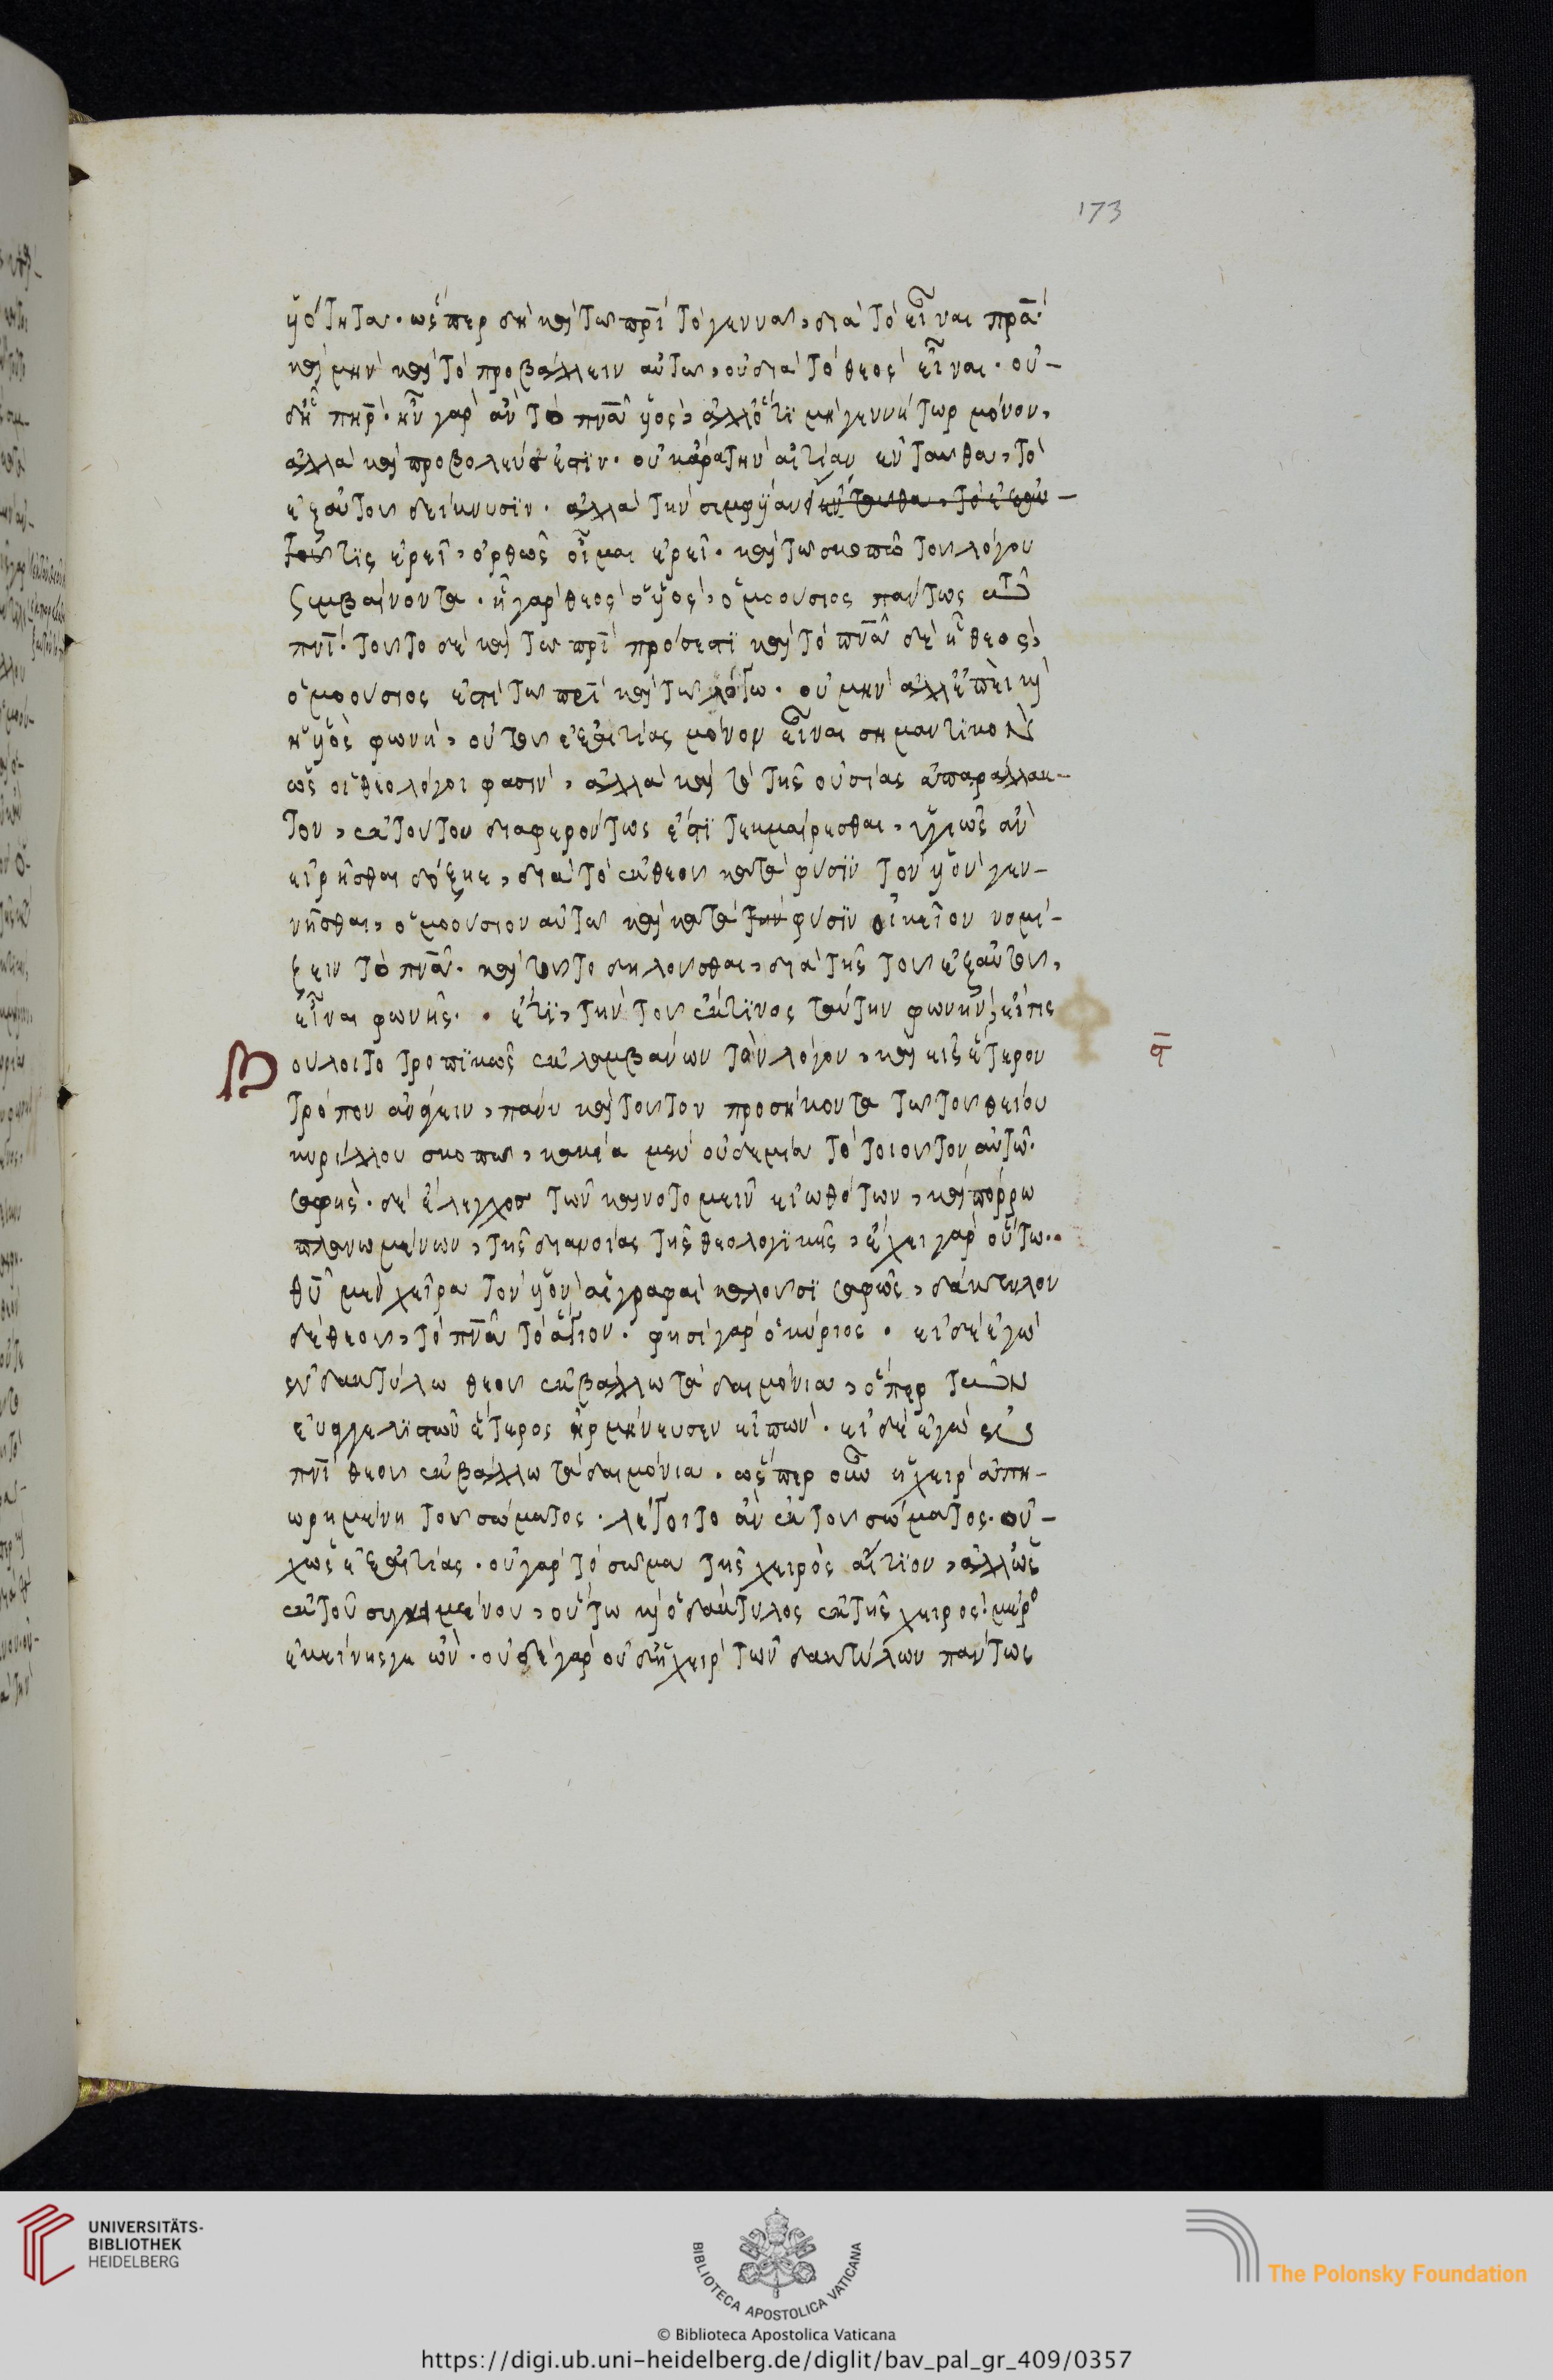 173
υἱότητα. ὥσπερ δὴ καὶ τῶ πρὶ τὸ γεννᾶν, διὰ τὸ εἶναι πρᾶ.
καὶ μὴν καὶ τὸ προβάλλειν αὐτῶ, οὐ διὰ τὸ θεὸς εἶναι. οὐ-
δ' ᾗ πηρ. ἦν γὰρ ἂν τὸ πνᾶ υἱὸς, ἀλλ' ὅτι μὴ γεννήτωρ μόνον,
ἀλλὰ καὶ προβολεύς ἐστιν. οὐκ ἄρα τὴν αἰτίαν ἐνταῦθα, τὸ
ἐξ αὐτοῦ δείκνυσιν. ἀλλὰ τὴν συμφυΐαν ἐνταῦθα, τὸ ἐξ αὐ-
τοῦ τις ἐρεῖ, ὀρθῶς οἶμαι ἐρεῖ. καὶ τῶ σκοπῶ τοῦ λόγου
συμβαίνοντα. ᾗ γὰρ θεὸς ὁ υἱὸς, ὁμοούσιος πάντως τῶ
πνι. τοῦτο δὲ καὶ τῶ πρὶ πρόσεστι καὶ τὸ πνᾶ δὲ ᾗ θεὸς,
ὁμοούσιος ἐστὶ τῶ πρὶ καὶ τῶ λόγω. οὐ μὴν ἀλλ' ἐπεὶ καὶ
ἡ υἱὸς φωνὴ, οὐ τοῦ ἐξ αἰτίας μόνον εἶναι σημαντικὸν
ὡς οἱ θεολόγοι φασὶν, ἀλλὰ καὶ τὸ τῆς οὐσίας ἀπαράλλακ-
τον, ἐκ τούτου διαφερόντως ἔστι τεκμαίρεσθαι, ὑγιῶς ἂν
εἰρῆσθαι δόξειε, διὰ τὸ ἐκ θεοῦ κατὰ φύσιν τὸν υἱὸν γεν-
νῆσθαι, ὁμοούσιον αὐτῶ καὶ κατὰ τὴν φύσιν οἰκεῖον νομί-
ζειν τὸ πνᾶ. καὶ τοῦτο δηλοῦσθαι, διὰ τῆς τοῦ ἐξ αὐτοῦ,
εἶναι φωνῆς. . ἔτι, τὴν τοῦ ἔκ τινος ταύτην φωνὴν, εἴ τις
Βούλοιτο τροπικῶς ἐκλαμβάνων τὸν λόγον, καὶ εἰς ἕτερον
τρόπον ἀνάγειν, πάνυ καὶ τοῦτον προσήκοντα τῶ τοῦ θείου
κυρίλλου σκοπῶ, κακία μὲν οὐδεμία τὸ τοιοῦτον αὐτῶ.
σαφὴς. δὲ ἔλεγχος τῶν καινοτομεῖν εἰωθότων, καὶ πόρρω
πλανωμένων, τῆς διανοίας τῆς θεολογικῆς, ἔχει γὰρ οὕτω..
θῦ μὲν χεῖρα τὸν υἱὸν αἱ γραφαὶ καλοῦσι σαφῶς, δάκτυλον
δὲ θεοῦ, τὸ πνᾶ τὸ ἅγιον. φησὶ γὰρ ὁ κύριος. εἰ δὲ ἐγὼ
ἐν δακτύλω θεοῦ ἐκβάλλω τὰ δαιμόνια, ὅπερ τῶν
εὐαγγελιστῶν ἕτερος ἡρμήνευσεν εἰπὼν. εἰ δὲ ἐγὼ ἐν
πνὶ θεοῦ ἐκβάλλω τὰ δαιμόνια. ὥσπερ οὖν ἡ χεὶρ ἀπη-
ωρημένη τοῦ σώματος. λέγοιτο ἂν ἐκ τοῦ σώματος. οὐ-
χ ὡς ἐξ αἰτίας. οὐ γὰρ τὸ σῶμα τῆς χειρὸς αἴτιον, ἀλλ' ὡς
ἐκ τοῦ συγκειμένου, οὕτω καὶ ὁ δάκτυλος ἐκ τῆς χειρὸς. μέρο
ἐκείνης γε ὤν. οὐδὲ γὰρ οὐδ' ἡ χεὶρ τῶν δακτύλων πάντως
UNIVERSITÄTS-
BIBLIOTHEK
HEIDELBERG
BIBLIOTECA APOSTOLICA VATICANA
The Polonsky Foundation
© Biblioteca Apostolica Vaticana
https://digi.ub.uni-heidelberg.de/diglit/bav_pal_gr_409/0357